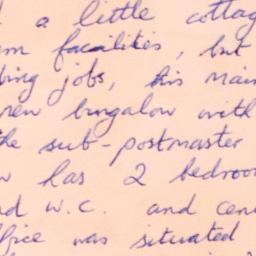 a little cottag
rn facilities, but
bing jobs, his main
new bungalow with
the sub-postmaster
w has 2 bedroom
nd w.c. and cen
ffice was situated